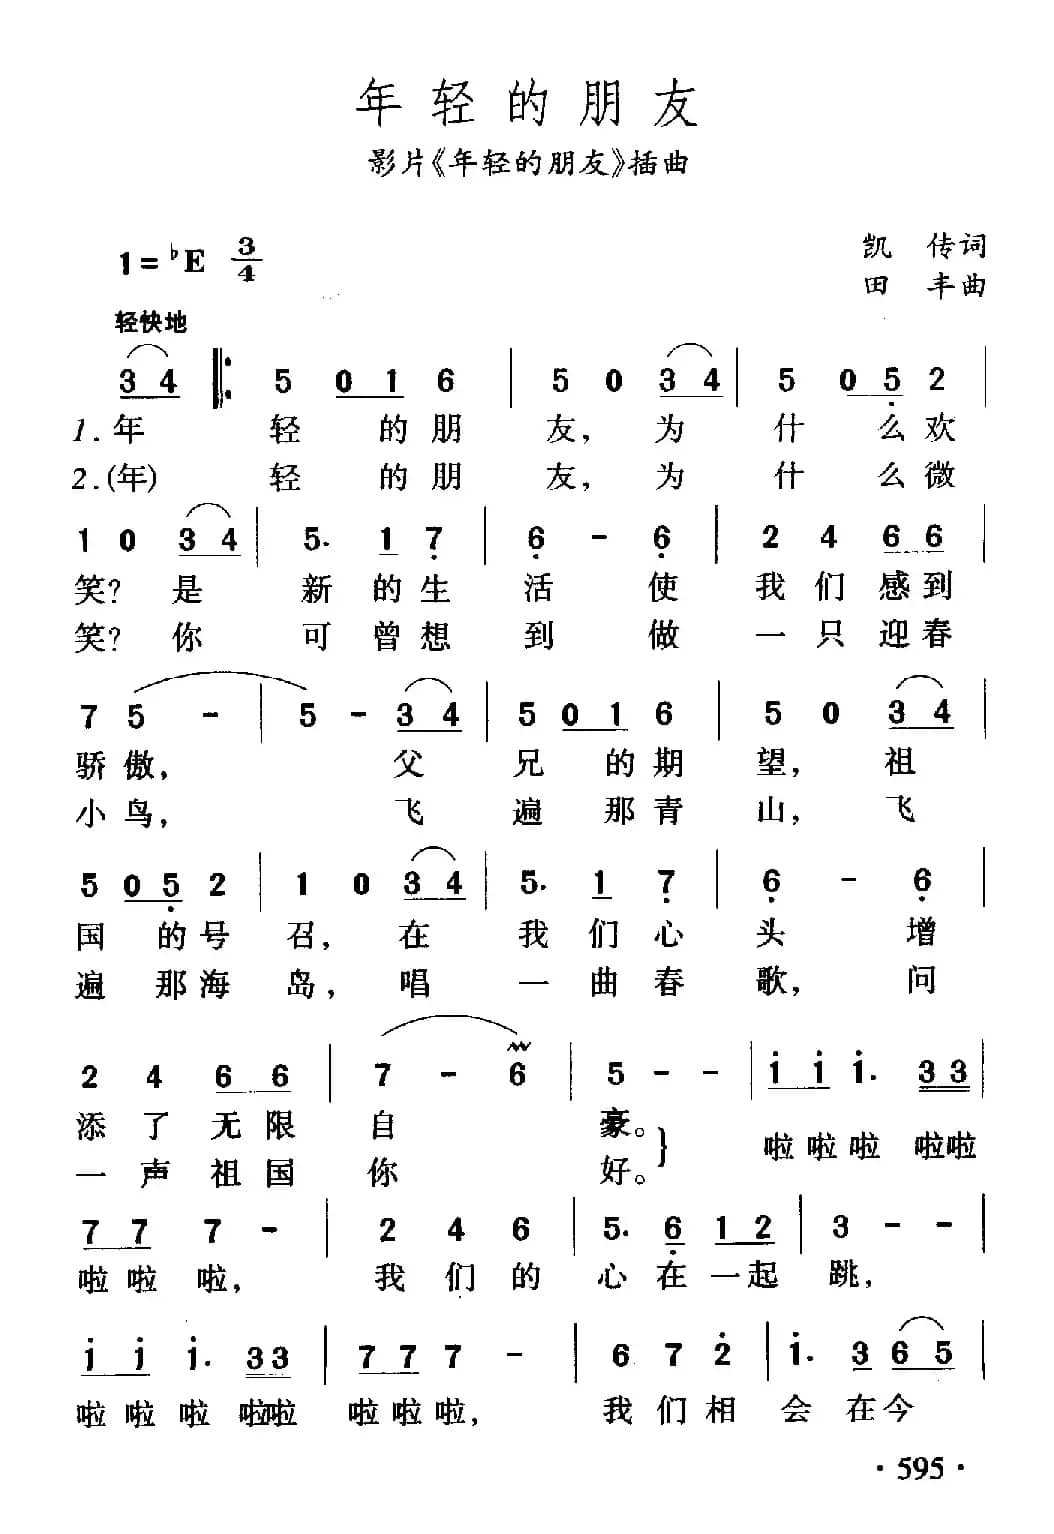 年轻的朋友
影片《年轻的朋友》插曲
1=♭E 3/4
凯 传词
田 丰曲
轻快地
3 4 |: 5 0 1 6 | 5 0 3 4 | 5 0 5̣ 2 |
1.年 轻 的 朋 友, 为 什 么 欢
2.(年) 轻 的 朋 友, 为 什 么 微
1 0 3 4 | 5. 1 7̣ | 6̣ - 6̣ | 2 4 6 6 |
笑? 是 新 的 生 活 使 我 们 感 到
笑? 你 可 曾 想 到 做 一 只 迎 春
7 5 - | 5 - 3 4 | 5 0 1 6 | 5 0 3 4 |
骄 傲, 父 兄 的 期 望, 祖
小 鸟, 飞 遍 那 青 山, 飞
5 0 5̣ 2 | 1 0 3 4 | 5. 1 7̣ | 6̣ - 6̣ |
国 的 号 召, 在 我 们 心 头 增
遍 那 海 岛, 唱 一 曲 春 歌, 问
2 4 6 6 | 7 - 6 | 5 - - | i i i. 3 3 |
添 了 无 限 自 豪。
一 声 祖 国 你 好。
} 啦 啦 啦 啦啦
7 7 7 - | 2 4 6 | 5. 6̣ 1 2 | 3 - - |
啦 啦 啦, 我 们 的 心 在 一 起 跳,
i i i. 3 3 | 7 7 7 - | 6 7 2̇ | i. 3 6 5 |
啦 啦 啦 啦啦 啦 啦 啦, 我 们 相 会 在 今
· 595 ·